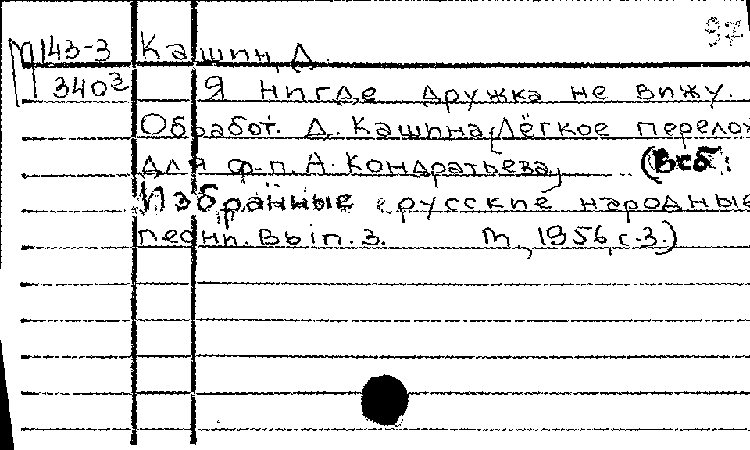 97
М143-3 Кашин, Д.
340² Я нигде дружка не вижу.
Обработ. Д. Кашина, [Лёгкое перелож
для ф-п. А. Кондратьева] .. (В сб:
Избранные русские народные
песни. Вып. 3. М, 1956, с.3.)